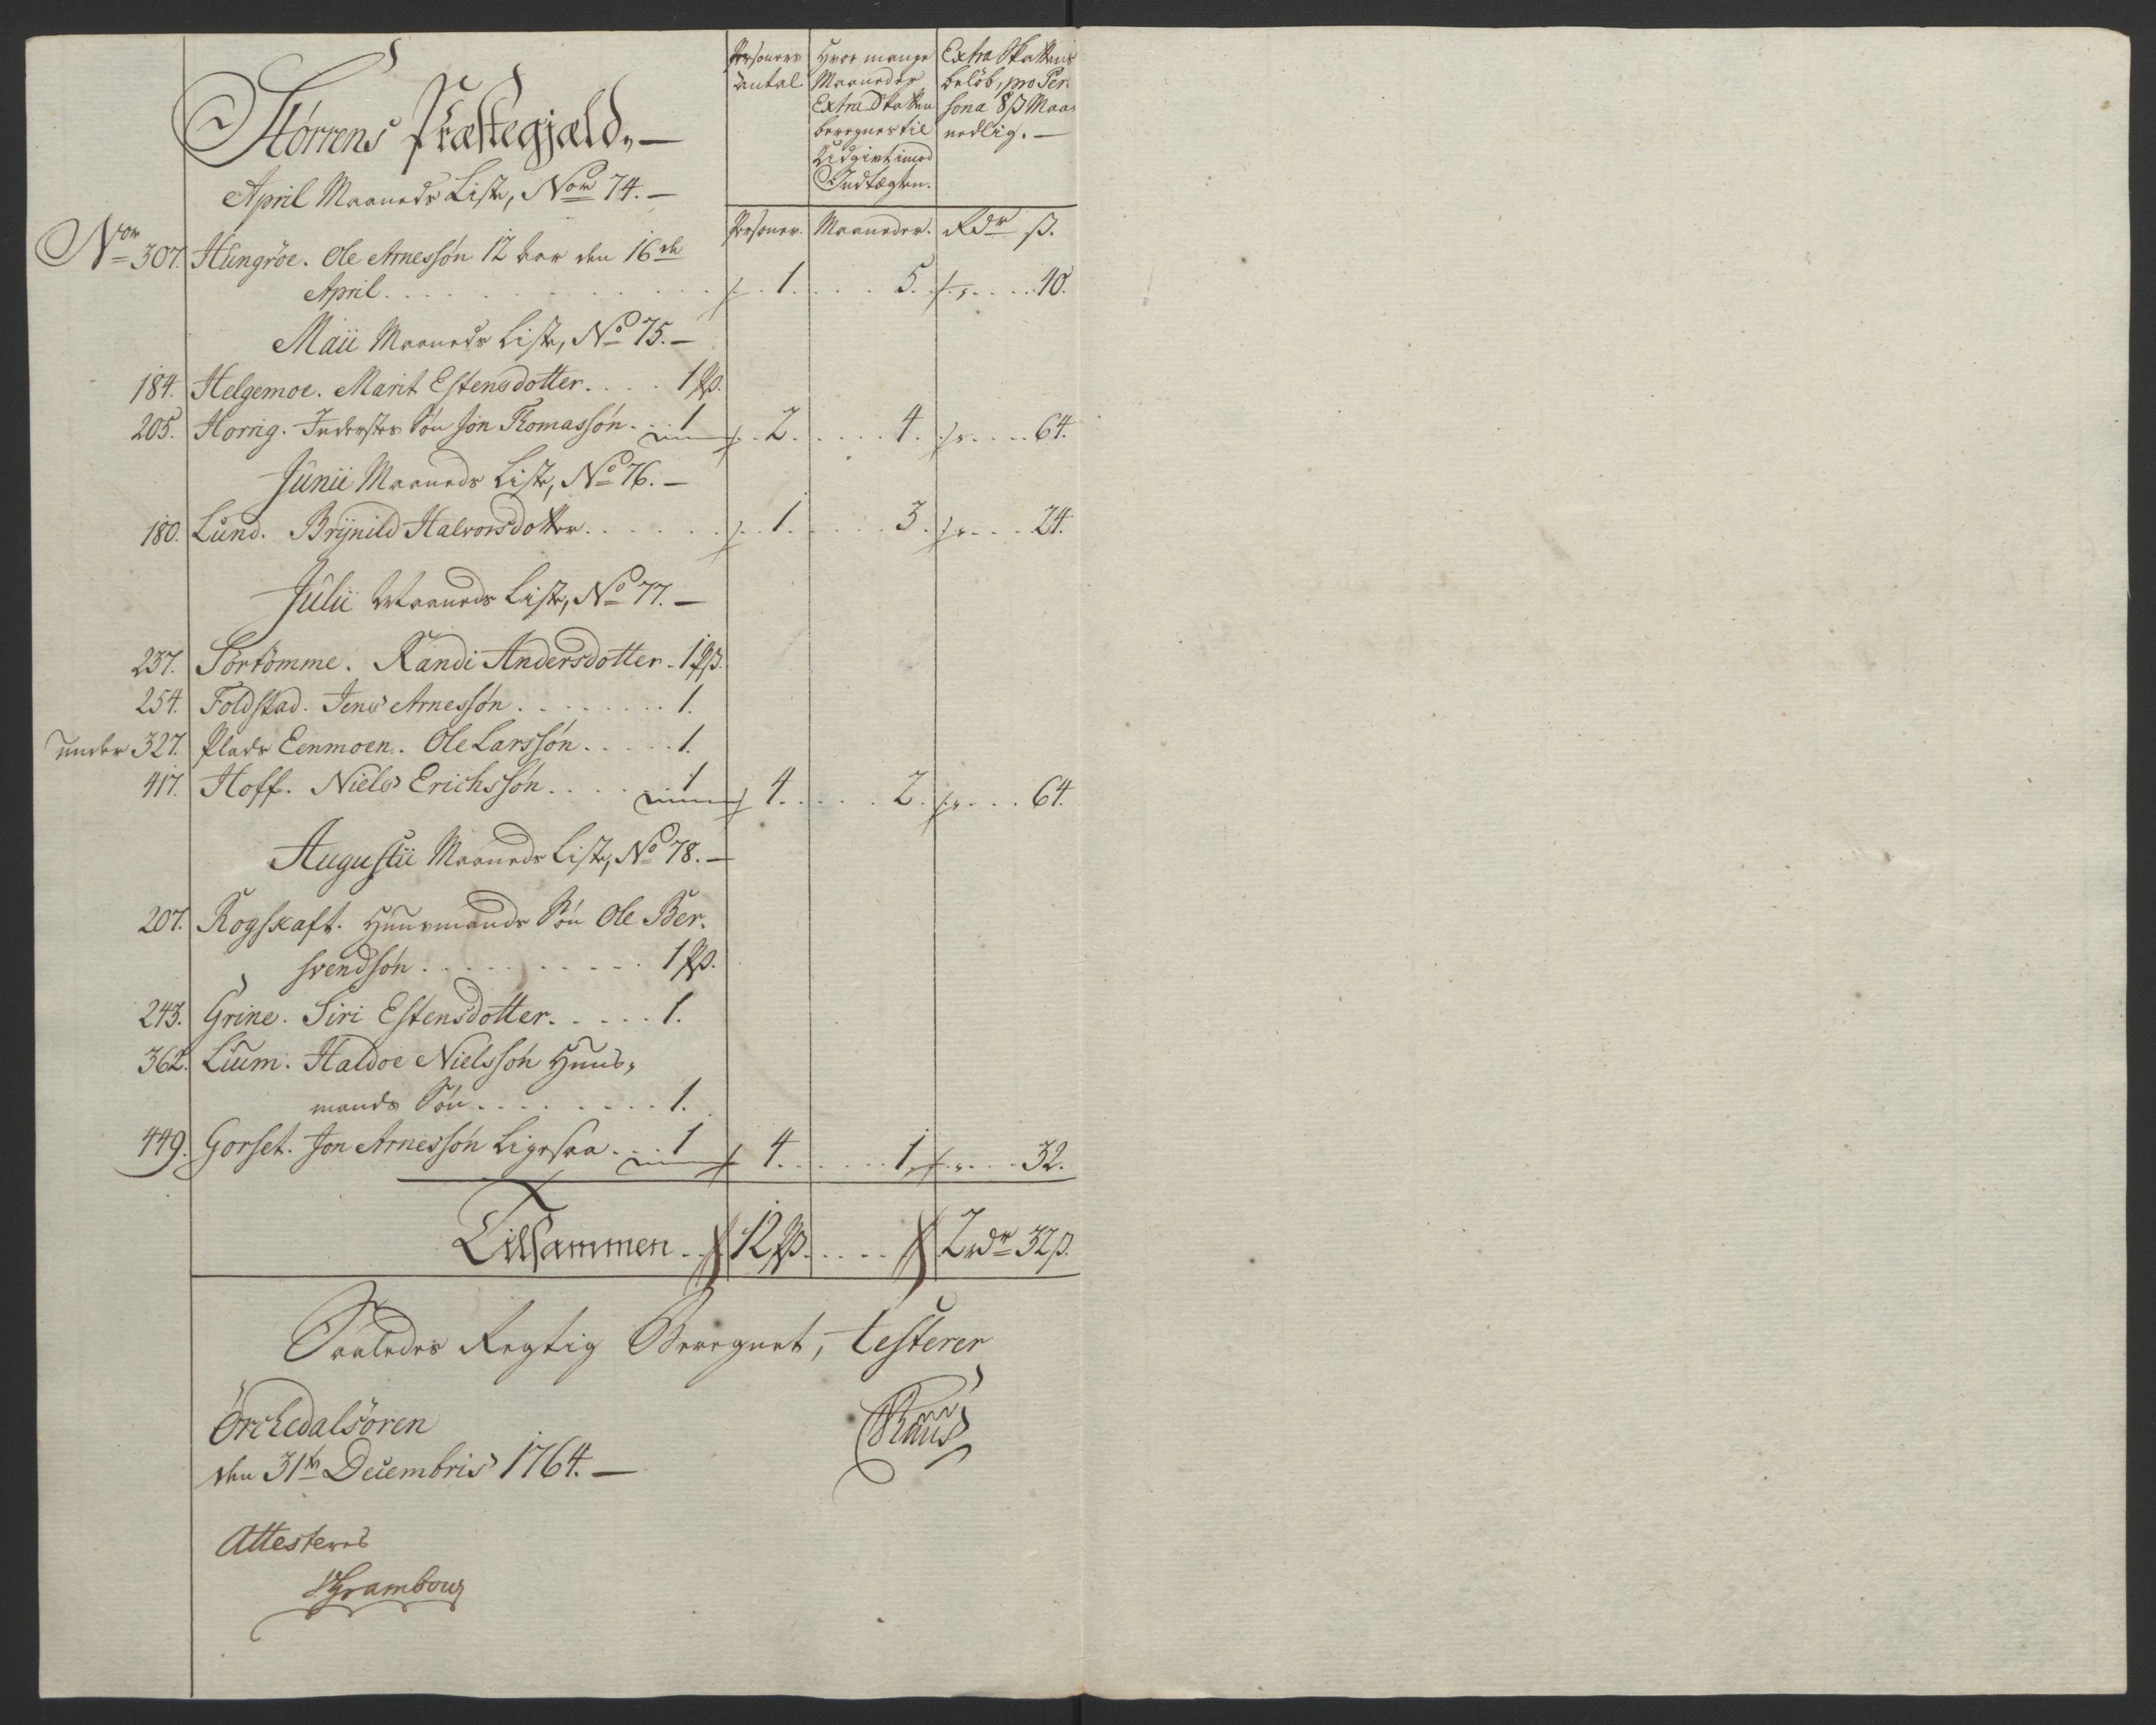 Størrens Præstegjæld. —
Personers Antal
Hvor mange Maaneder Extra Skatten beregnes til Udgivt imod Indtægten.
Extra Skattens beløb, pro Persona 8 ß Maanedlig. —
April Maaneds Liste, Nor 74. —
Personer. Maaneder. Rdr ß.
Nor 307. Hungröe. Ole Arnessøn 12 Aar den 16de
April . . . 1. . . . 5. . . . 40.
Maii Maaneds Liste, No 75. —
184. Helgemoe. Marit Estensdotter. . . . 1 Ps.
205. Horrig. Inderstes Søn Jon Thomassøn. . . 1 . . 2. . . . 4. . . . 64.
Junii Maaneds Liste, No 76. —
180. Lund. Brÿnild Halvorsdotter. . . . 1. . . . 3. . . . 24.
Julii Maaneds Liste, No 77. —
237. Sörtömme. Randi Andersdotter. 1 Ps.
254. Foldstad. Jens Arnessøn. . . . 1.
under 327. Plads Eenmoen. Ole Larssøn. . . . 1.
417. Hoff. Niels Erichssøn. . . . 1 4. . . . 2. . . . 64.
Augustii Maaneds Liste, No 78. —
207. Rogskaft. Huusmands Søn Ole Ber-
svendsøn . . . 1 Ps.
243. Grine. Siri Estensdotter. . . . 1.
362. Lium. Haldoe Nielssøn Huus-
mands Søn . . . 1.
449. Gorset. Jon Arnessøn Ligesaa . . . 1 4. . . . 1. . . . 32.
Tilsammen . . 12 Ps. . . . 2 rdr 32 ß.
Saaledes Rigtig Beregnet, testerer
Örchedalsören
den 31te Decembris 1764. —
Attesteres